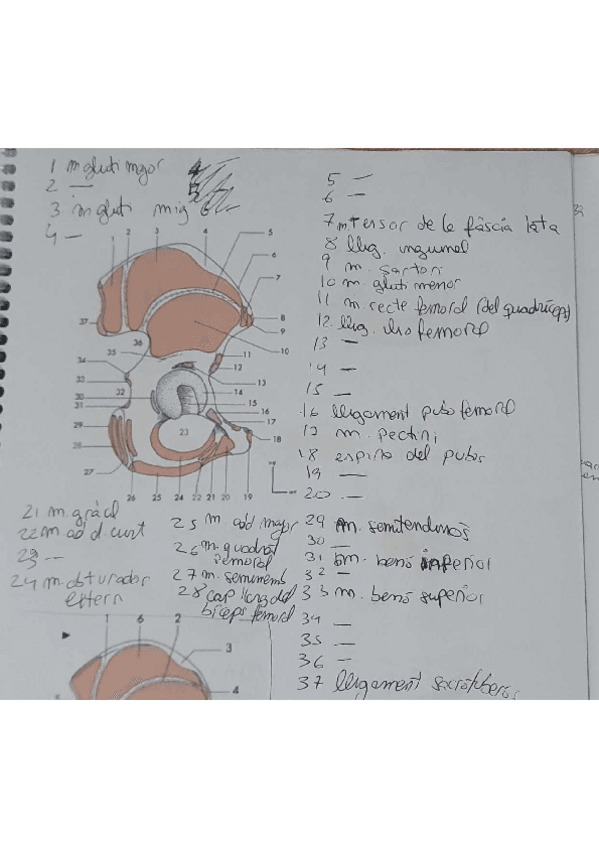 1 m gluti major
2 —
3 m gluti mig
4 —
5 —
6 —
7 m. tensor de la fàscia lata
8 llig. inguinal
9 m. sartori
10 m. gluti menor
11 m. recte femoral (del quadríceps)
12 llig. iliofemoral
13 —
14 —
15 —
16 lligament pubofemoral
17 m. pectini
18 espina del pubis
19 —
20 —
21 m. gràcil
22 m add. curt
23 —
24 m. obturador
extern
25 m add major
26 m. quadrat
femoral
27 m. semimemb
28 cap llarg del
bíceps femoral
29 m. semitendinós
30 —
31 m. bessó inferior
32 —
33 m. bessó superior
34 —
35 —
36 —
37 lligament sacrotuberós
1 2 3 4 5
6
7
8
9
10
11
12
13
14
15
16
17
18
37
36
35
34
33
32
30
31
29
28
27
23
26 25 24 22 21 20 19
1 6 2
3
4